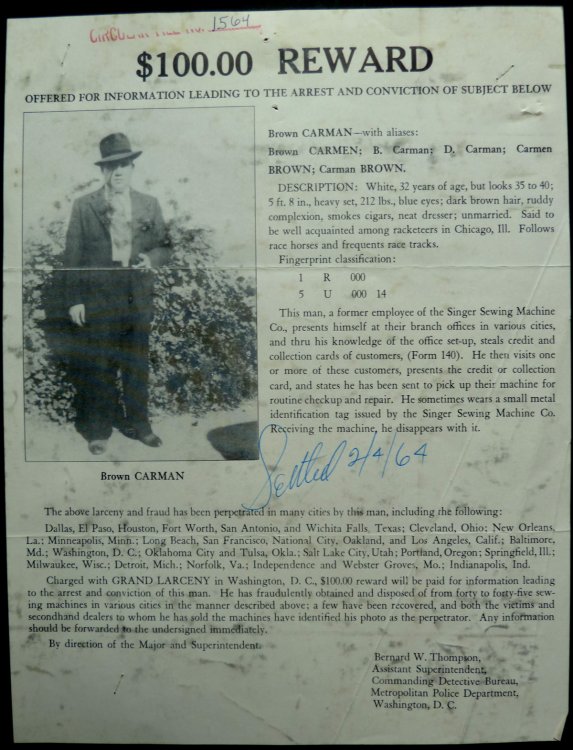 CIRCULAR FILE NO. 1564
$100.00 REWARD
OFFERED FOR INFORMATION LEADING TO THE ARREST AND CONVICTION OF SUBJECT BELOW
Brown CARMAN—with aliases:
Brown CARMEN; B. Carman; D. Carman; Carmen
BROWN; Carman BROWN.
DESCRIPTION: White, 32 years of age, but looks 35 to 40;
5 ft. 8 in., heavy set, 212 lbs., blue eyes; dark brown hair, ruddy
complexion, smokes cigars, neat dresser; unmarried. Said to
be well acquainted among racketeers in Chicago, Ill. Follows
race horses and frequents race tracks.
Fingerprint classification:
1 R 000
5 U 000 14
This man, a former employee of the Singer Sewing Machine
Co., presents himself at their branch offices in various cities,
and thru his knowledge of the office set-up, steals credit and
collection cards of customers, (Form 140). He then visits one
or more of these customers, presents the credit or collection
card, and states he has been sent to pick up their machine for
routine checkup and repair. He sometimes wears a small metal
identification tag issued by the Singer Sewing Machine Co.
Receiving the machine, he disappears with it.
Settled 2/4/64
Brown CARMAN
The above larceny and fraud has been perpetrated in many cities by this man, including the following:
Dallas, El Paso, Houston, Fort Worth, San Antonio, and Wichita Falls, Texas; Cleveland, Ohio; New Orleans,
La.; Minneapolis, Minn.; Long Beach, San Francisco, National City, Oakland, and Los Angeles, Calif.; Baltimore,
Md.; Washington, D. C.; Oklahoma City and Tulsa, Okla.; Salt Lake City, Utah; Portland, Oregon; Springfield, Ill.;
Milwaukee, Wisc.; Detroit, Mich.; Norfolk, Va.; Independence and Webster Groves, Mo.; Indianapolis, Ind.
Charged with GRAND LARCENY in Washington, D. C., $100.00 reward will be paid for information leading
to the arrest and conviction of this man. He has fraudulently obtained and disposed of from forty to forty-five sew-
ing machines in various cities in the manner described above; a few have been recovered, and both the victims and
secondhand dealers to whom he has sold the machines have identified his photo as the perpetrator. Any information
should be forwarded to the undersigned immediately.
By direction of the Major and Superintendent.
Bernard W. Thompson,
Assistant Superintendent,
Commanding Detective Bureau,
Metropolitan Police Department,
Washington, D. C.